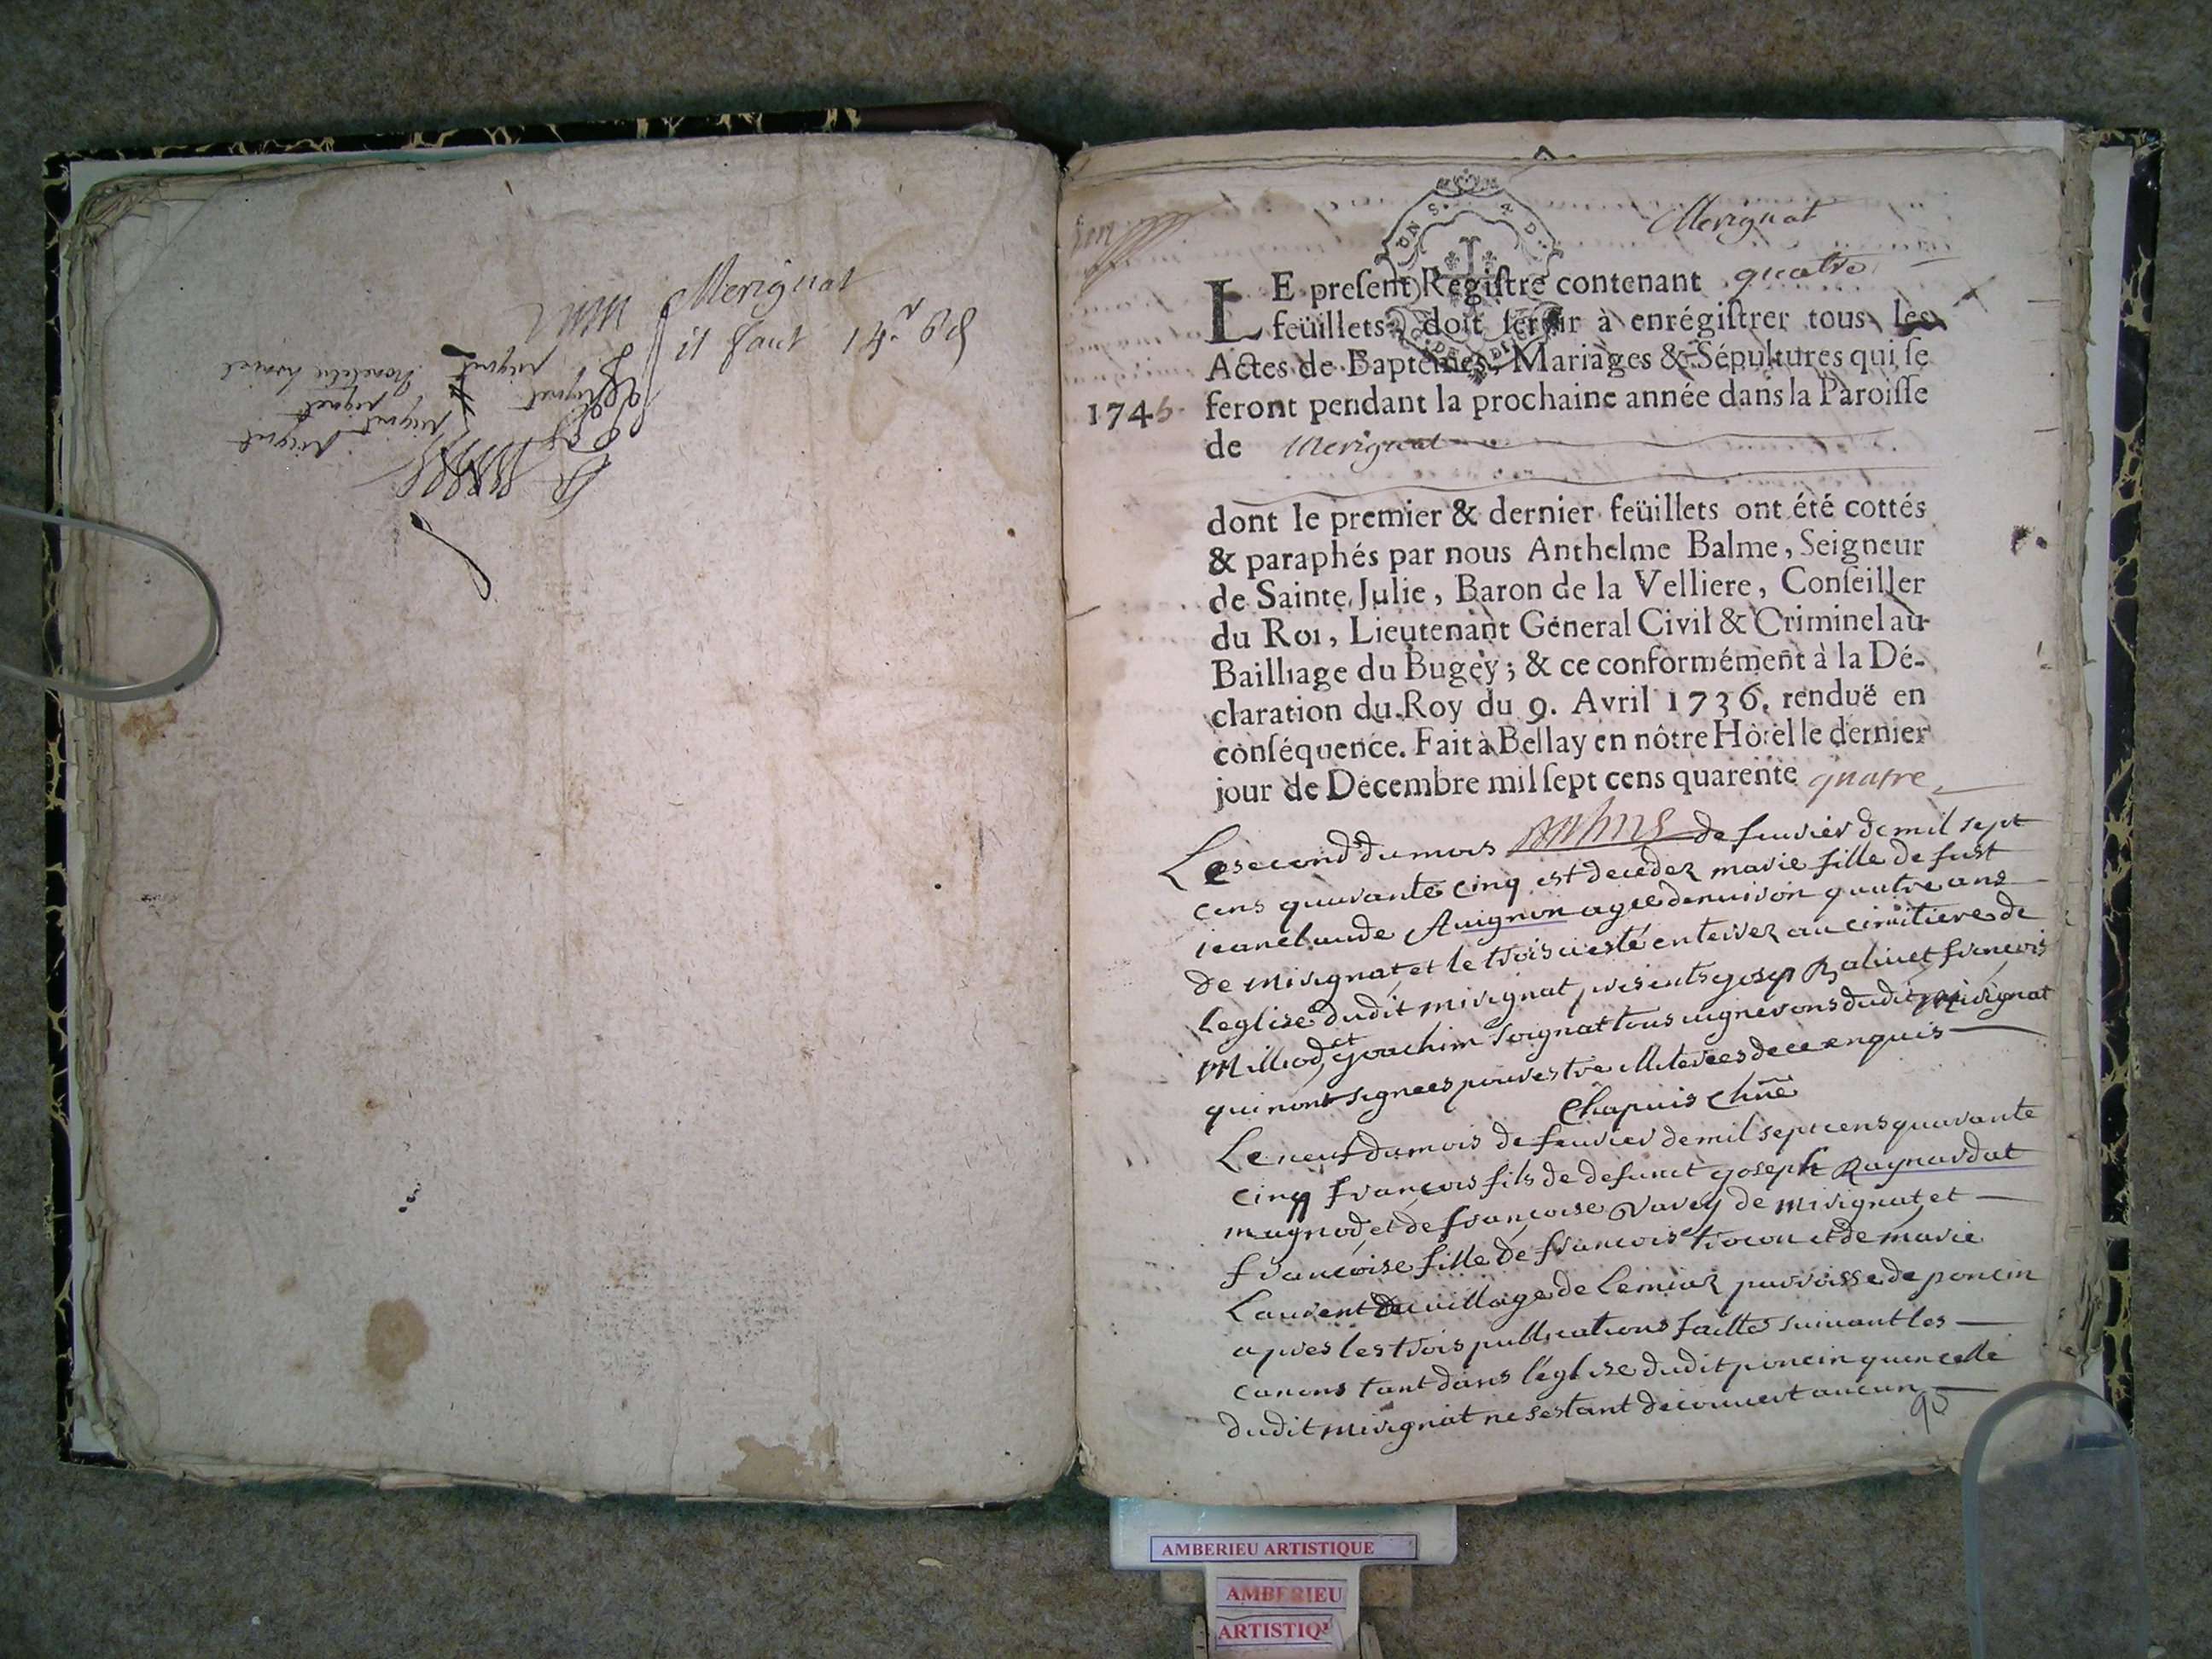 Merignat
il faut
Merignat
LE present Registre contenant quatre
feüillets doit servir à enrégistrer tous les
Actes de Baptêmes, Mariages & Sépultures qui se
1745 feront pendant la prochaine année dans la Paroisse
de Merignat
dont le premier & dernier feüillets ont été cottés
& paraphés par nous Anthelme Balme, Seigneur
de Sainte Julie, Baron de la Velliere, Conseiller
du Roi, Lieutenant Géneral Civil & Criminel au
Bailliage du Bugey; & ce conformément à la Dé-
claration du Roy du 9. Avril 1736. renduë en
conséquence. Fait à Bellay en nôtre Hôtel le dernier
jour de Décembre mil sept cens quarente quatre
Le second du mois de feuvier de mil sept
cens quarante cinq est decedez marie fille de fust
jean claude Auignon agee denuiron quatre ans
de mirignat et le trois a esté enterrez au cimitiere de
leglise dudit mirignat presents josep Baliuet francois
Milliod et joachim soignat tous uignerons dudit mirignat
qui nont signees pour estre illiterees de ce enquis
Chapuis
Le neuf du mois de feuvier de mil sept cens quarante
cinq francois fils de defunct joseph Raynardat
magnod et de francoise Varey de mirignat et
francoise fille de francois trocon et de marie
Laurent du uillage de Lemiaz parroisse de poncin
apres les trois publications faittes suiuant les
canons tant dans l'église dudit poncin quen celle
dudit mirignat ne sestant decouuert aucun
95
AMBERIEU ARTISTIQUE
AMBERIEU
ARTISTIQ